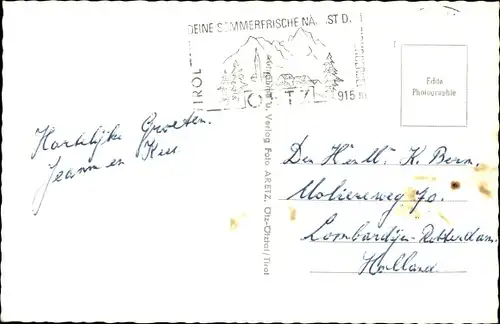 DEINE SOMMERFRISCHE NÄ ST D.
TIROL
OETZ
915 m
Echte
Photographie
Hartelijke Groeten.
Jeanne en Kees
u. Verlag Foto ARETZ, Ötz-Ötztal/Tirol
Den Heer K. Bern.
Molièreweg 70.
Lombardijen-Rotterdam
Holland